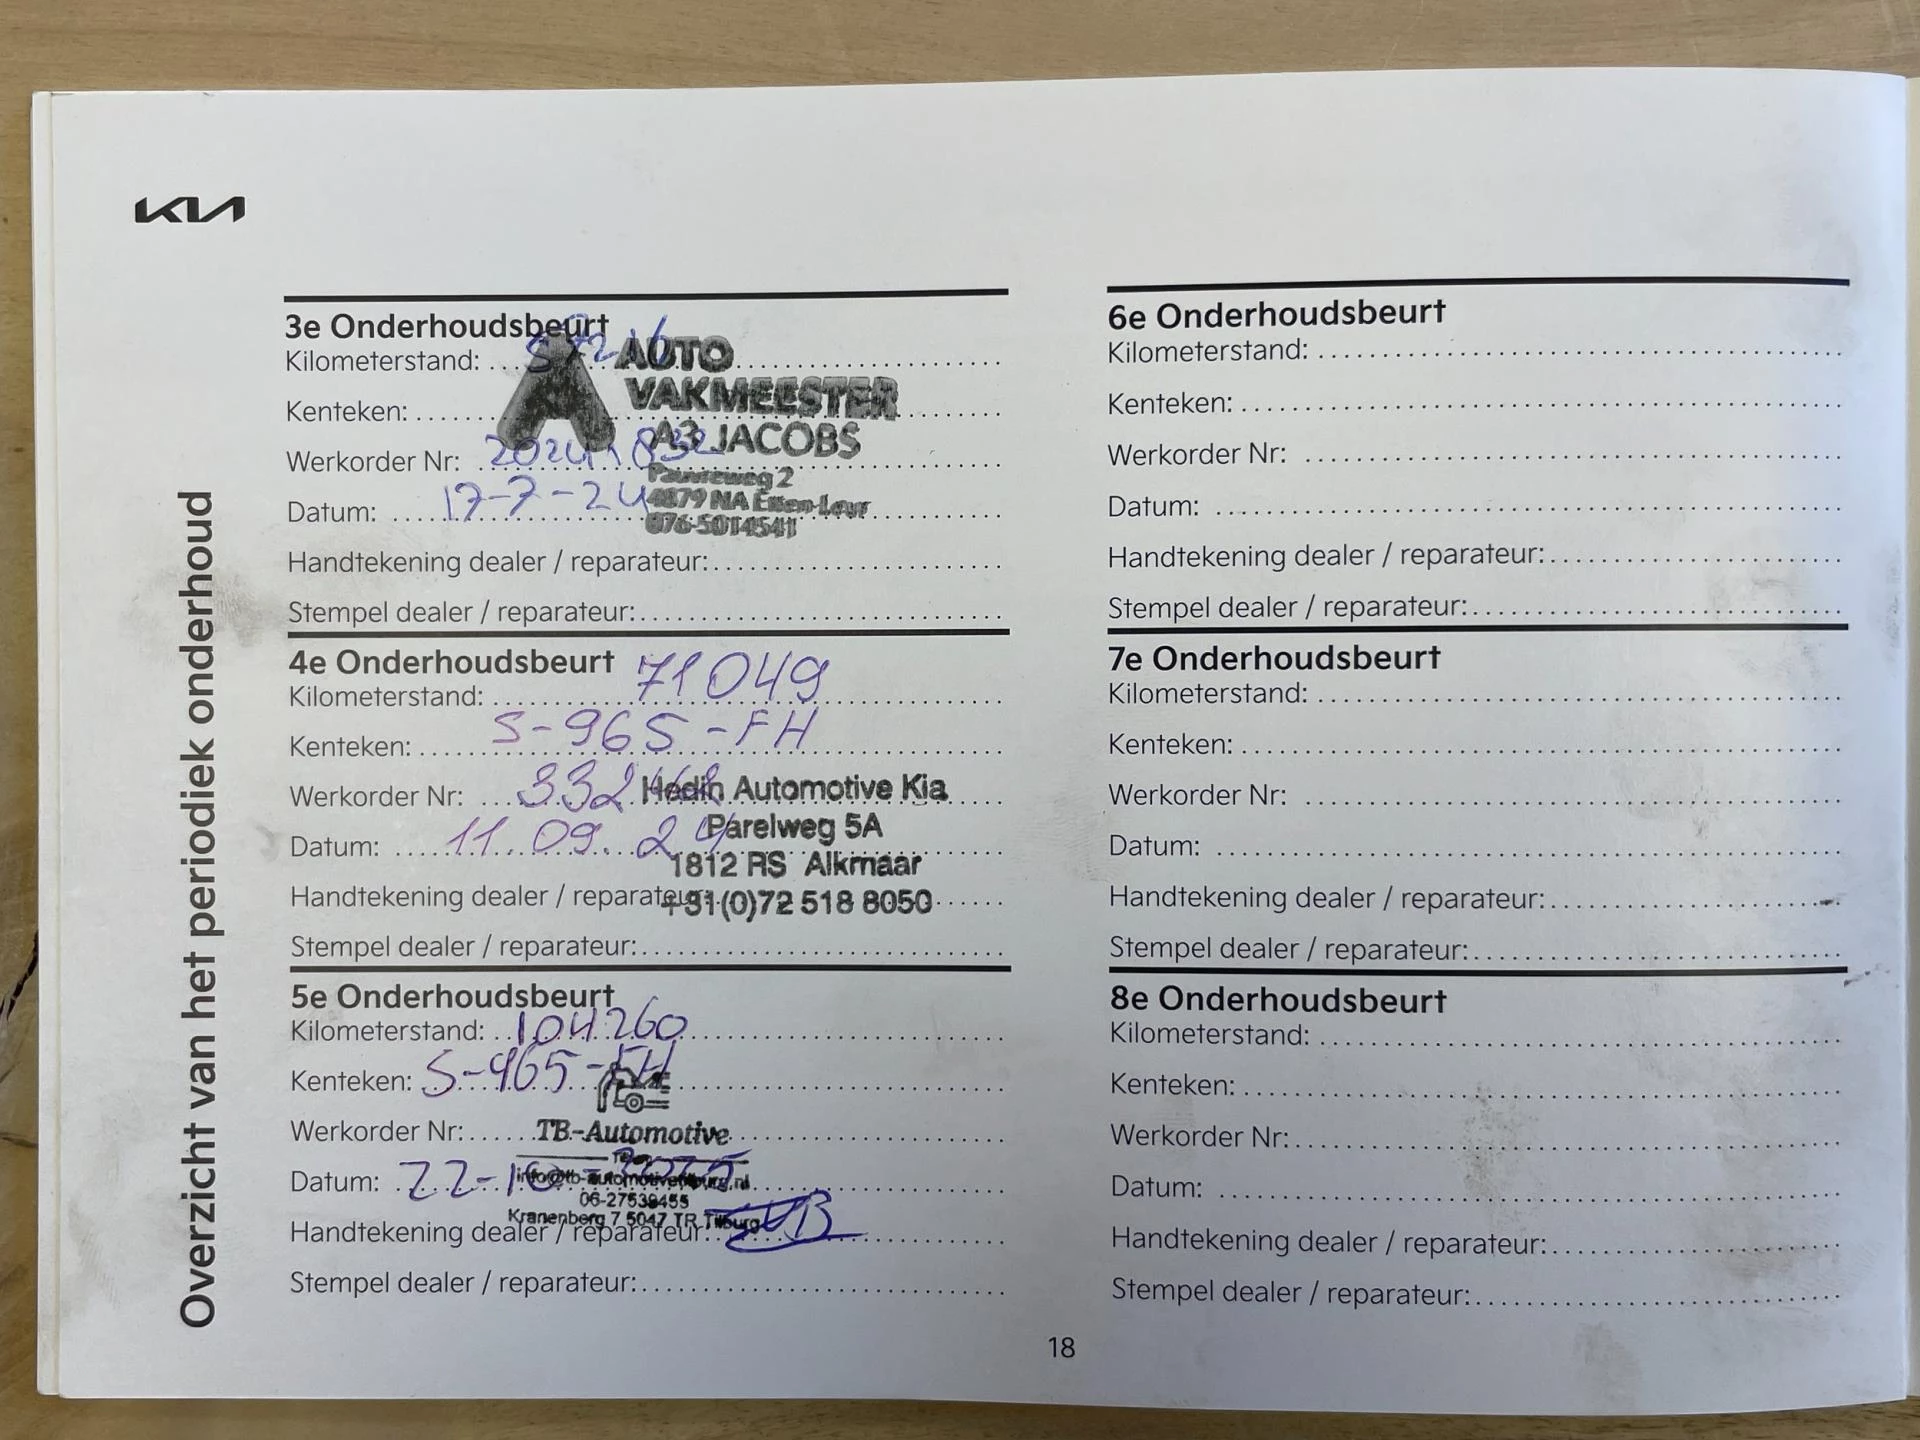 KIA
Overzicht van het periodiek onderhoud
3e Onderhoudsbeurt
Kilometerstand: 57216
AUTO
VAKMEESTER
Kenteken:
A3 JACOBS
Werkorder Nr: 832
Pauvreweg 2
Datum: 17-7-24
4879 NA Etten-Leur
076-5014541
Handtekening dealer / reparateur:
Stempel dealer / reparateur:
4e Onderhoudsbeurt
Kilometerstand: 71049
Kenteken: S-965-FH
Werkorder Nr:
Hedin Automotive Kia
Parelweg 5A
Datum: 11.09.24
1812 RS Alkmaar
Handtekening dealer / reparateur:
+31(0)72 518 8050
Stempel dealer / reparateur:
5e Onderhoudsbeurt
Kilometerstand: 104260
Kenteken: S-965-FH
Werkorder Nr:
TB-Automotive
Datum: 22-10-2025
info@tb-automotivetilburg.nl
06-27539455
Kranenberg 7 5047 TR Tilburg
Handtekening dealer / reparateur:
Stempel dealer / reparateur:
6e Onderhoudsbeurt
Kilometerstand:
Kenteken:
Werkorder Nr:
Datum:
Handtekening dealer / reparateur:
Stempel dealer / reparateur:
7e Onderhoudsbeurt
Kilometerstand:
Kenteken:
Werkorder Nr:
Datum:
Handtekening dealer / reparateur:
Stempel dealer / reparateur:
8e Onderhoudsbeurt
Kilometerstand:
Kenteken:
Werkorder Nr:
Datum:
Handtekening dealer / reparateur:
Stempel dealer / reparateur:
18